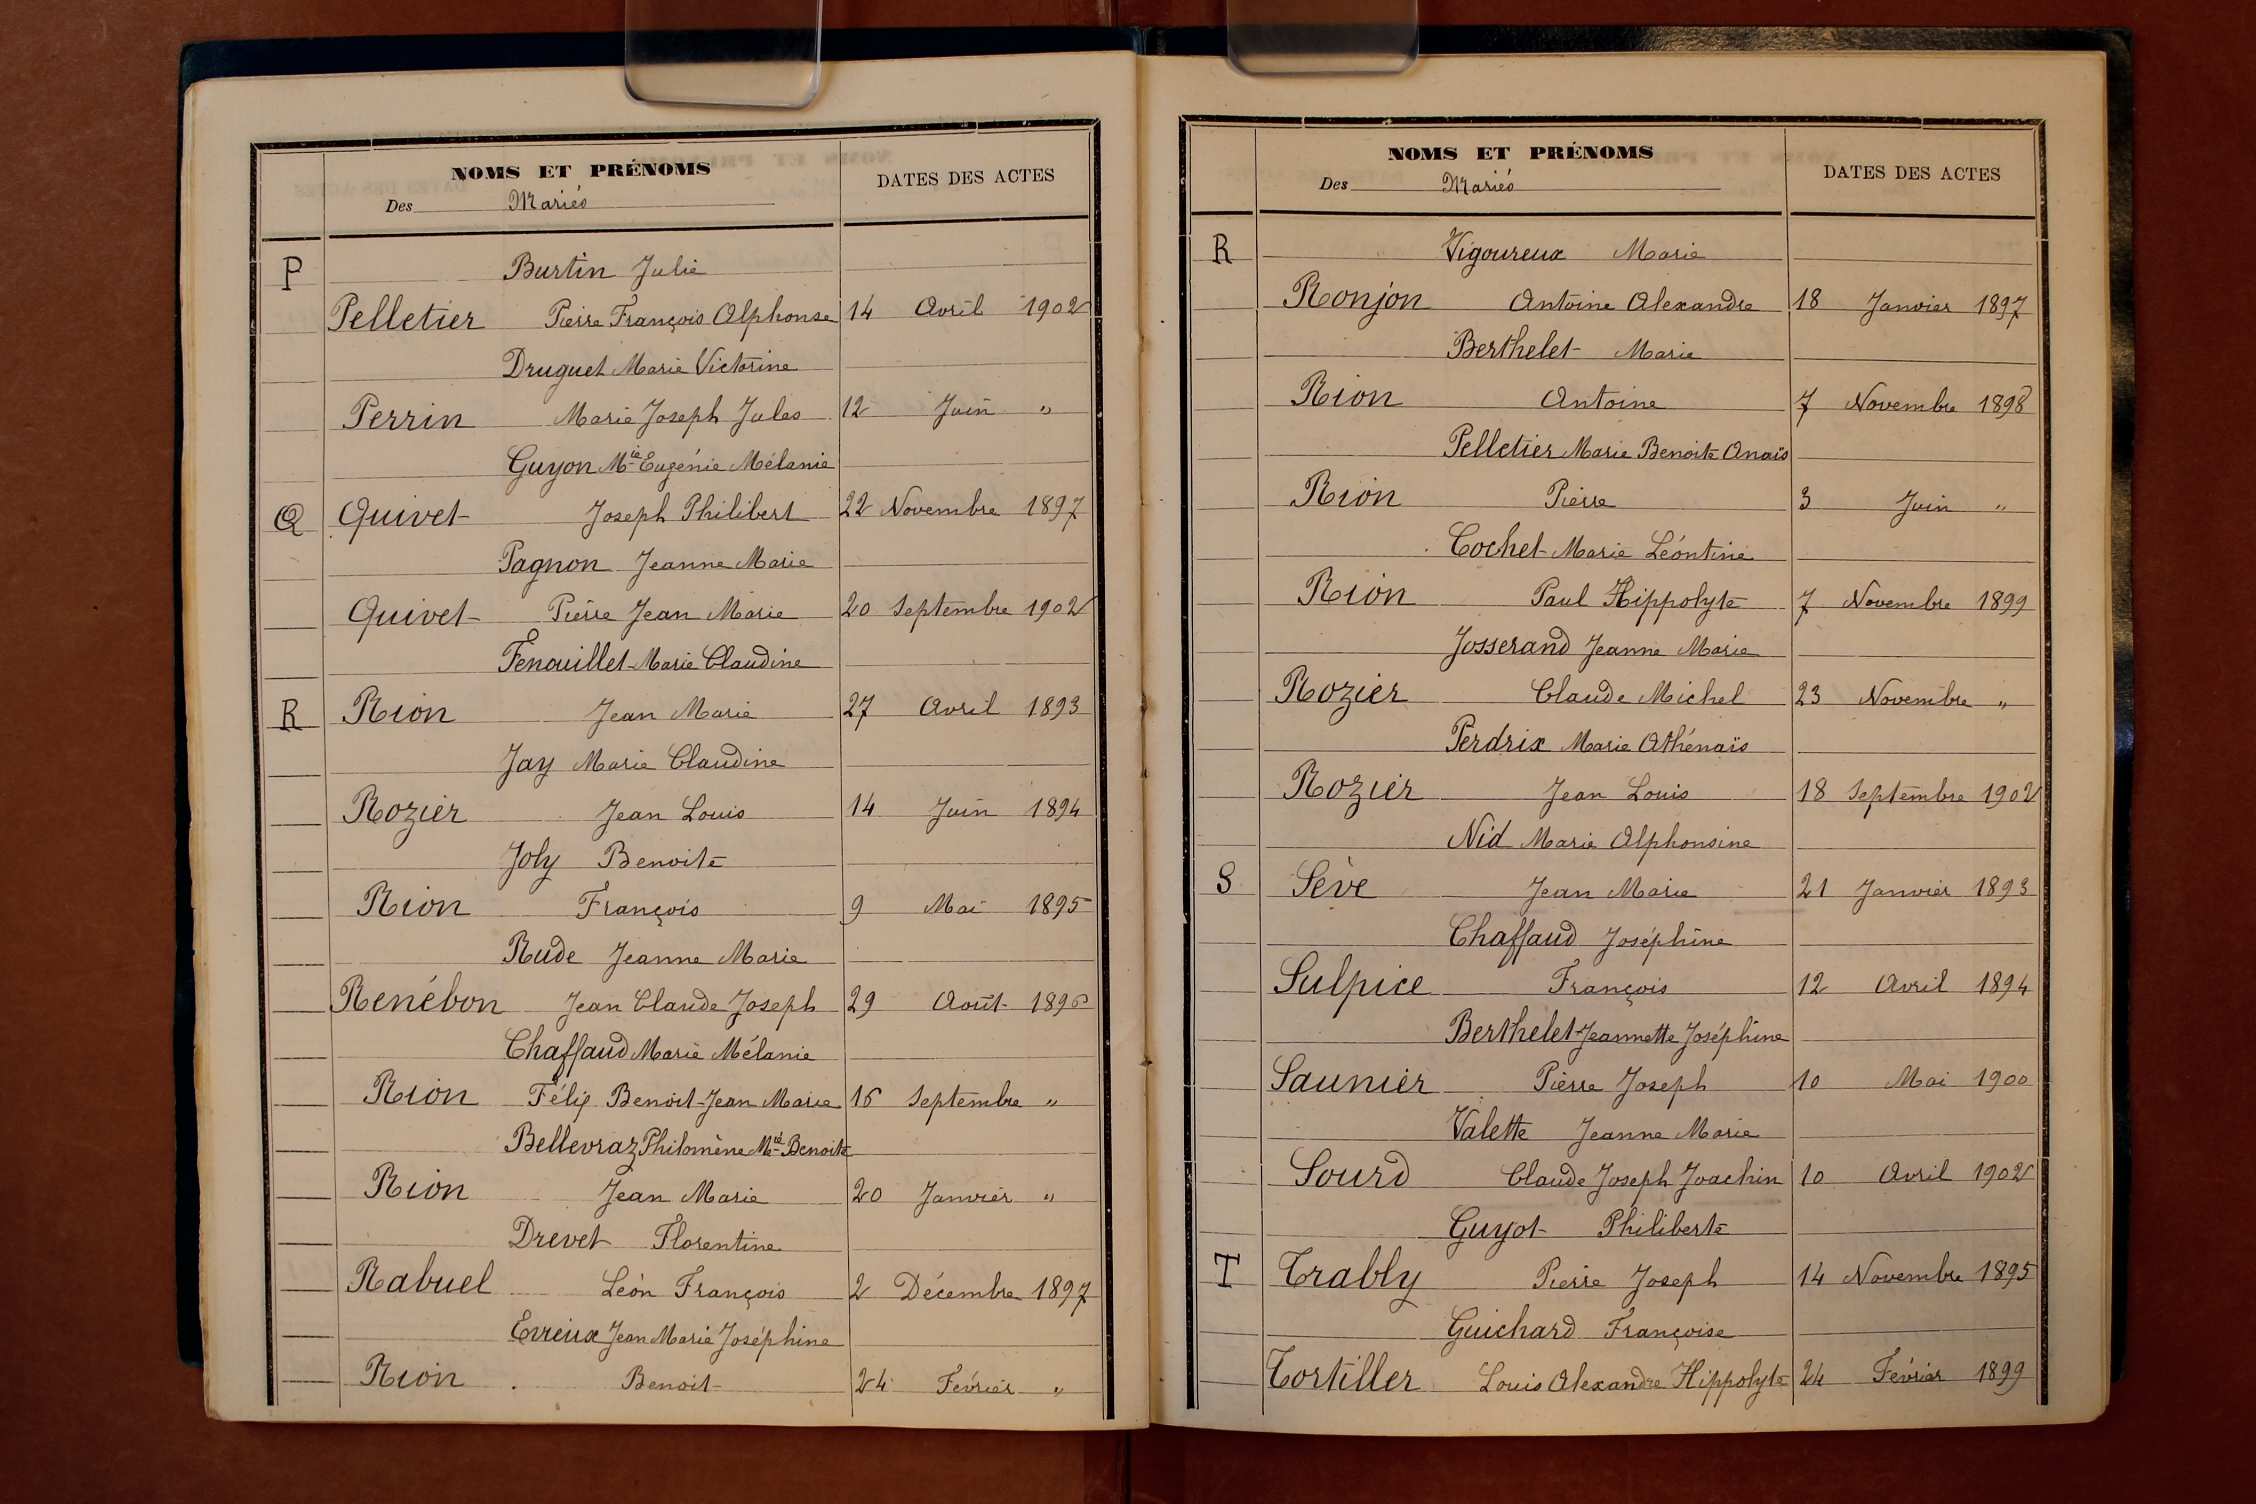 NOMS ET PRÉNOMS
Des Mariés
DATES DES ACTES
P
Burtin Julie
Pelletier Pierre François Alphonse 14 Avril 1902
Druguet Marie Victorine
Perrin Marie Joseph Jules 12 Juin "
Guyon Mie Eugénie Mélanie
Q Quivet Joseph Philibert 22 Novembre 1897
Pagnon Jeanne Marie
Quivet Pierre Jean Marie 20 Septembre 1902
Fenouillet Marie Claudine
R Rion Jean Marie 27 Avril 1893
Jay Marie Claudine
Rozier Jean Louis 14 Juin 1894
Joly Benoite
Rion François 9 Mai 1895
Rude Jeanne Marie
Renébon Jean Claude Joseph 29 Août 1896
Chaffaud Marie Mélanie
Rion Félix Benoit Jean Marie 16 Septembre "
Bellevraz Philomène Mie Benoite
Rion Jean Marie 20 Janvier "
Drevet Florentine
Rabuel Léon François 2 Décembre 1897
Evreux Jean Marie Joséphine
Rion Benoit 24 Février "
NOMS ET PRÉNOMS
Des Mariés
DATES DES ACTES
R Vigoureux Marie
Ronjon Antoine Alexandre 18 Janvier 1897
Berthelet Marie
Rion Antoine 7 Novembre 1898
Pelletier Marie Benoite Anaïs
Rion Pierre 3 Juin "
Cochet Marie Léontine
Rion Paul Hippolyte 7 Novembre 1899
Josserand Jeanne Marie
Rozier Claude Michel 23 Novembre "
Perdrix Marie Athénaïs
Rozier Jean Louis 18 Septembre 1902
Nid Marie Alphonsine
S Sève Jean Marie 21 Janvier 1893
Chaffaud Joséphine
Sulpice François 12 Avril 1894
Berthelet Jeannette Joséphine
Saunier Pierre Joseph 10 Mai 1900
Valette Jeanne Marie
Sourd Claude Joseph Joachin 10 Avril 1902
Guyot Philiberte
T Trably Pierre Joseph 14 Novembre 1895
Guichard Françoise
Tortiller Louis Alexandre Hippolyte 24 Février 1899